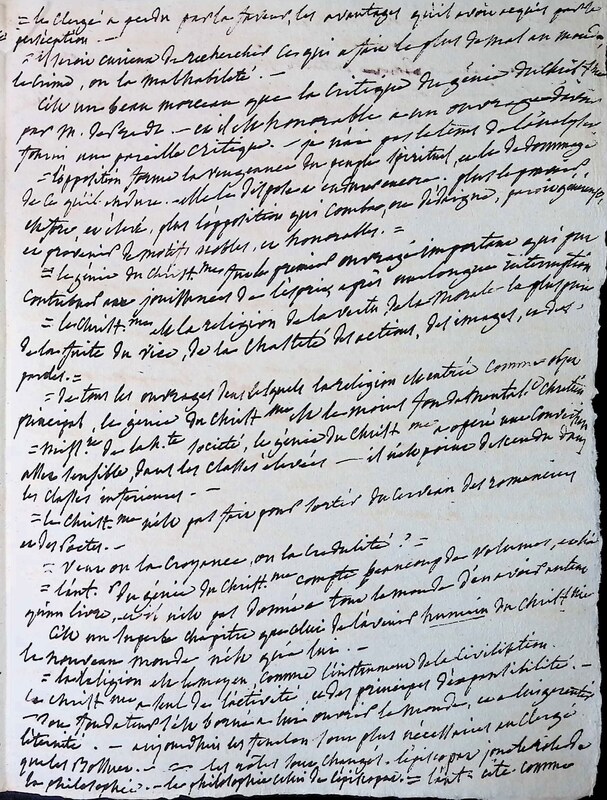 = le Clergé a perdu par la faveur, les avantages qu'il avoit acquis par la
persécution. -
= il seroit curieux de rechercher ce qui a fait le plus de mal au monde
le Crime, ou la malhabileté. -
C'est un beau morceau que la Critique du génie du Christ.me
par M. de Pradt. - et il est honorable a un ouvrage d'avoir
fourni une pareille Critique. - je n'ai pas le tems de
= l'opposition forme la vengeance du peuple spirituel, elle le dédommage
de ce qu'il endure. elle le dispose a endurer encore. plus le pouvoir
est fort, et élevé, plus l'opposition qui combat, ou dédaigne, paroit généreuse,
et provenir de motifs nobles, et honorables. =
= le génie du Christ.me fut le premier ouvrage important a qui put
contribuer aux jouissances de l'esprit après une longue interruption
= le Christ.me est la religion de la vertu, de la Morale la plus pure
de la fuite du vice, de la Chasteté des actions, des images, et des
paroles. =
= De tous les ouvrages dans lesquels la religion est entrée comme objet
principal, le génie du Christ.me est le moins fondamental.t Chrétien
= de la h.te société, le génie du Christ.me a opéré une Conviction
assez sensible, dans les Classes élevées - il n'est point descendu dans
les classes inférieures. -
= le Christ.me n'est pas fait pour sortir du cerveau des romanciers
et des Poetes. -
= Veut on la Croyance, ou la Crédulité ? -
= l'aut.r du génie du Christ.me compte beaucoup de volumes, et
qu'un livre, et il n'est pas donné a tout le monde d'en avoir autant
C'est un superbe chapitre que celui de l'avenir humain du Christ.me
le nouveau monde n'est qu'a lui. -
= la Religion est le moyen, comme l'instrument de la Civilisation.
le Christ.me a seul de l'activité, et des principes d'expansibilité. -
- Son fondateur s'est borné a lui ouvrir le monde, et a lui garantir
l'éternité. - aujourd'hui les fenelon sont plus nécessaires au Clergé
que les Bossuet. - = les rôles sont changés. l'épiscopat joue le rôle de
la philosophie. - la philosophie celui de l'épiscopat. = l'aut. cite comme